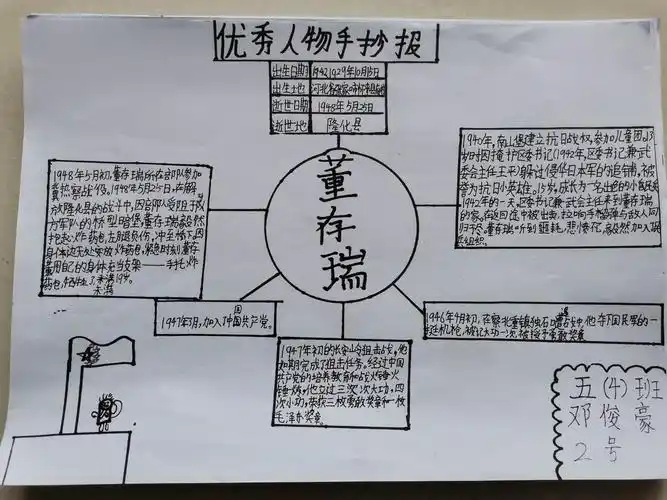 优秀人物手抄报
出生日期 1929年10月15日
出生地 河北省张家口市怀来县
逝世日期 1948年5月25日
逝世地 隆化县
董存瑞
1948年5月初,董存瑞所在部队参加
冀热察战役。1948年5月25日,在解
放隆化县的战斗中,因部队受阻于敌
方军队的桥型暗堡,董存瑞毅然
抱起炸药包,左腿负伤,冲至桥下,因
身体边无处安放炸药包,紧急时刻董存
瑞用自己的身体充当支架——手托炸
药包,牺牲了,未满19岁。
未满
1940年,南山堡建立抗日政权,参加儿童团。13
岁时因掩护区委书记(1942年,区委书记兼武
委会主任王平)躲过侵华日本军的追捕,被
誉为抗日小英雄。15岁,成长为一名出色的小民兵
1942年的一天,区委书记兼武会主任来到董存瑞
的家,在返回途中被包围,拉响手榴弹与敌人同
归于尽。董存瑞听到噩耗,悲愤
组织。
1947年3月,加入了中国共产党。
国
1947年初的长安岭狙击战,他
如期完成了狙击任务,经过中国
共产党的培养教育和战火锤火
锤炼,他立过三次大功,四
次小功,荣获三枚勇敢奖章和一枚
毛泽东奖章。
1946年4月初,在察北重镇独石口遭遇战中,他夺下国民军的一
挺机枪,被记大功一次,被授予勇敢奖章
五(4)班
邓俊豪
2号